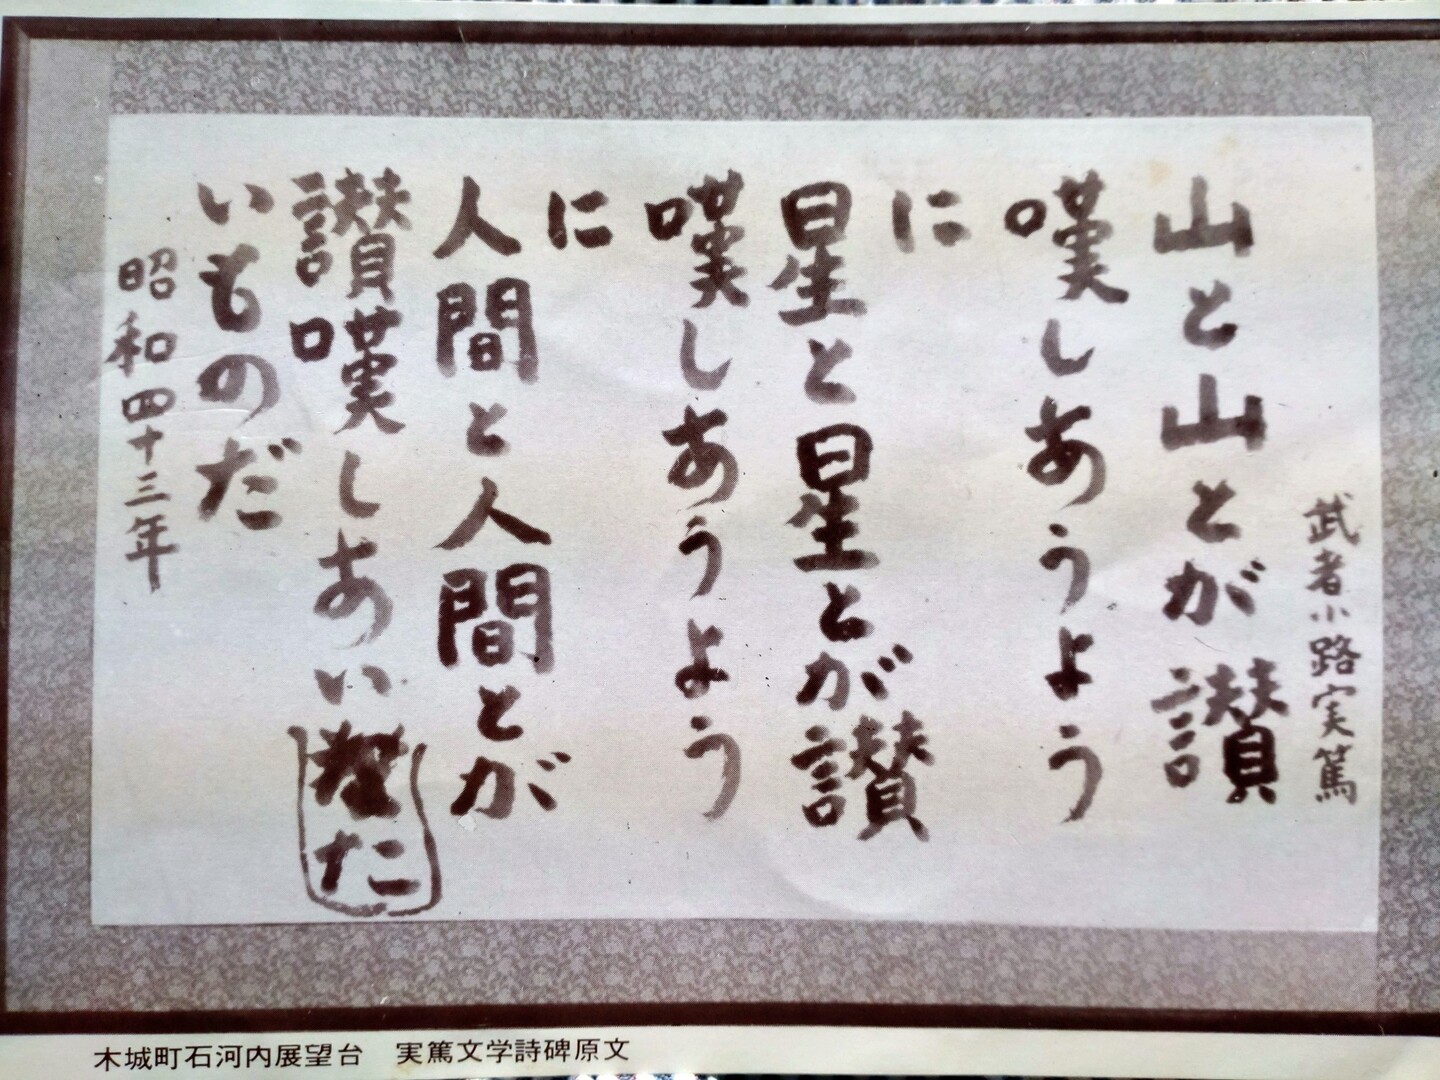 武者小路実篤
山と山とが讃
嘆しあうよう
に
星と星とが讃
嘆しあうよう
に
人間と人間とが
讃嘆しあい
たいものだ
昭和四十三年
木城町石河内展望台　実篤文学詩碑原文